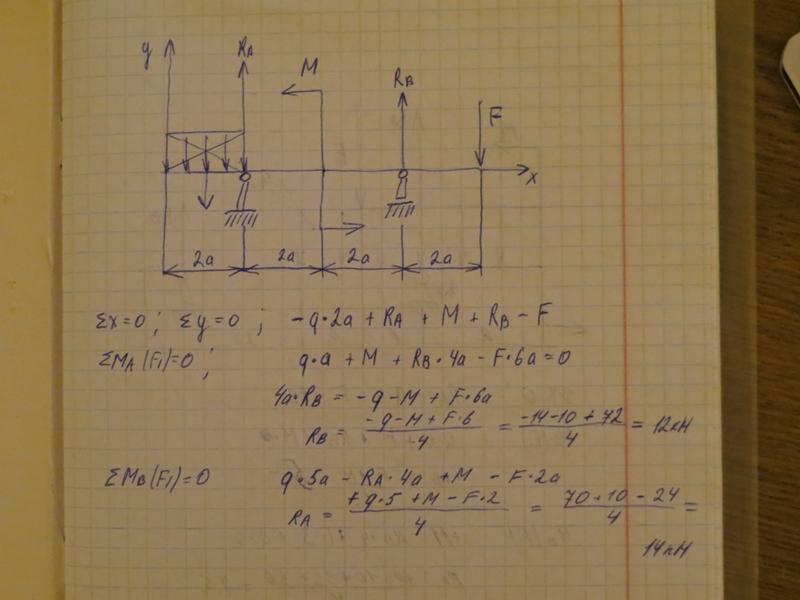 y RA M RB F
x
2a 2a 2a 2a
Σx=0 ; Σy=0 ; -q·2a + RA + M + RB - F
ΣMA(F1)=0 ; q·a + M + RB·4a - F·6a=0
4a·RB = -q-M + F·6a
RB = (-q-M+F·6)/-4 = (-14-10+72)/4 = 12кН
ΣMB(F1)=0 q·5a - RA·4a +M - F·2a
RA = (+q·5+M-F·2)/4 = (70+10-24)/4 =
14кН